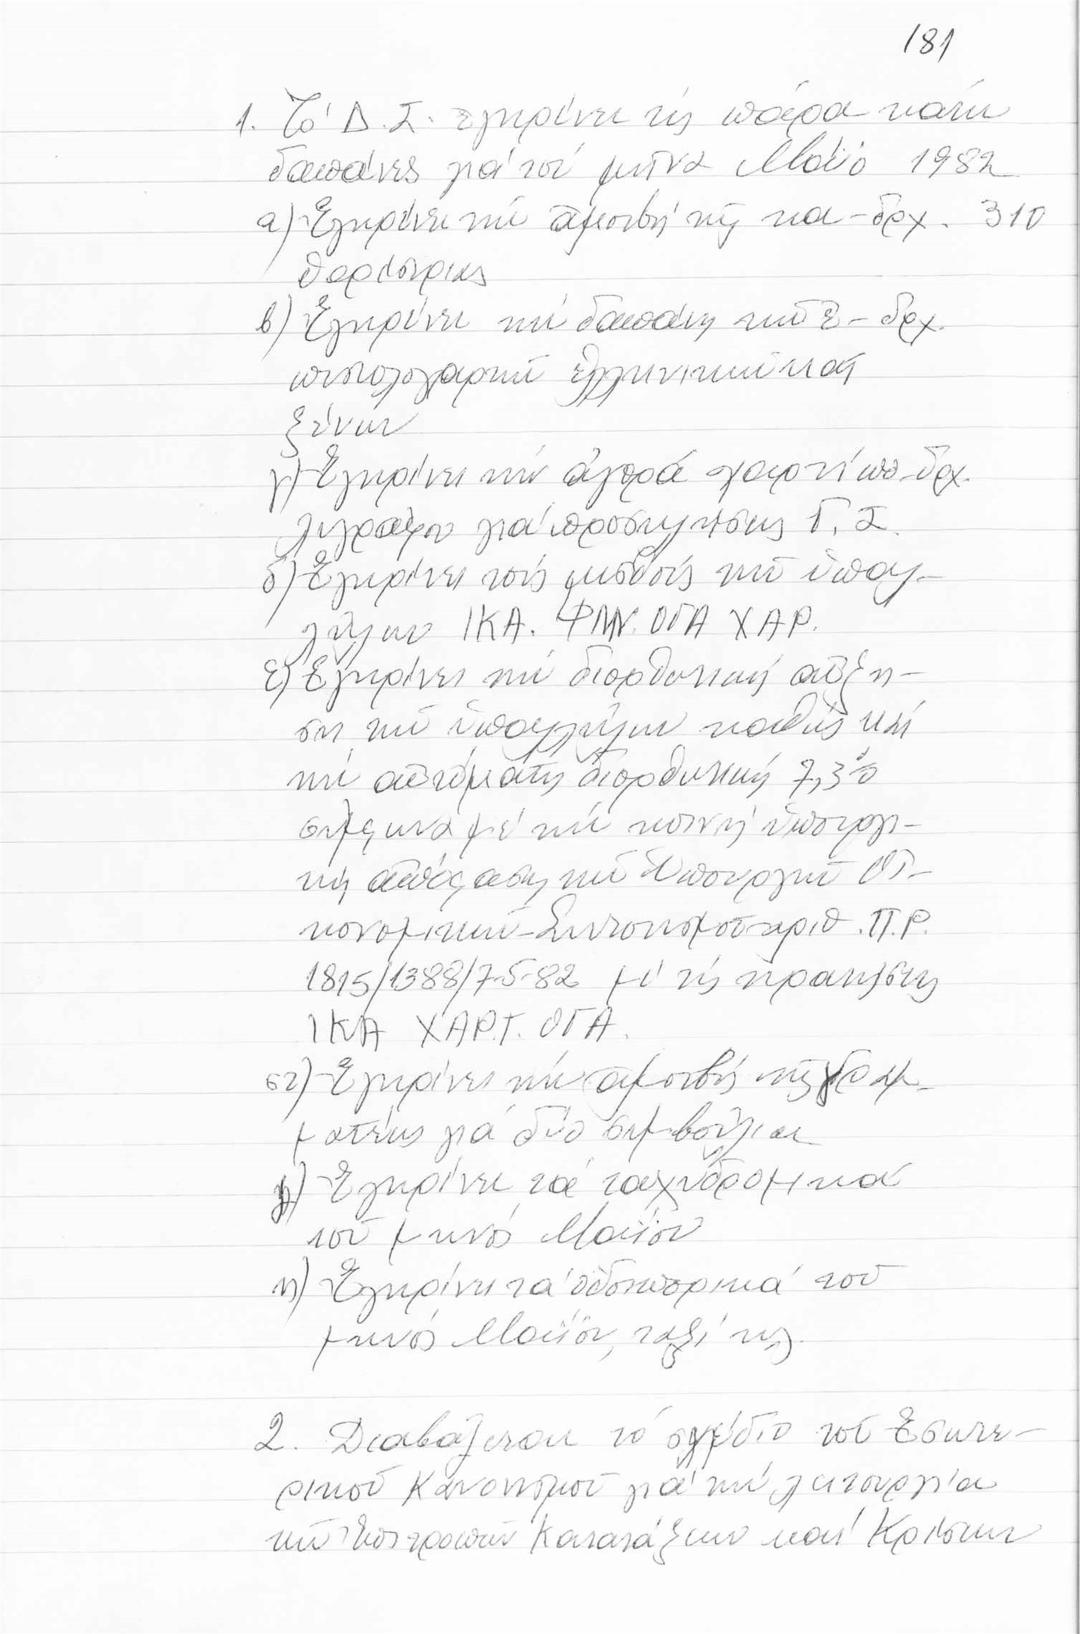 181
1. Τό Δ.Σ. ἐγκρίνει τίς πάρα κάτω
δαπάνες γιά τόν μῆνα Μάϊο 1982
α) Ἐγκρίνει τήν ἀμοιβή τῆς κα- δρχ. 310
θαρίστριας
β) Ἐγκρίνει τήν δαπάνη τῶν - δρχ.
ἑλληνικῶν καί
ξένων
γ) Ἐγκρίνει τήν ἀγορά χαρτί πο- δρχ.
λυγράφου γιά προσκλήσεις Γ.Σ.
δ) Ἐγκρίνει τούς μισθούς τῶν ὑπαλ-
λήλων ΙΚΑ. ΦΜΥ. ΟΓΑ ΧΑΡ.
ε) Ἐγκρίνει τήν διορθωτική αὔξη-
ση τῶν ὑπαλλήλων καθώς καί
τήν αὐτόματη διορθωτική 7,3%
σύμφωνα μέ τήν κοινή ὑπουργι-
κή ἀπόφαση τῶν Ὑπουργῶν Οἰ-
κονομικῶν-Συντονισμοῦ ἀριθ. Π.Ρ.
1815/1388/7-5-82 μέ τίς κρατήσεις
ΙΚΑ ΧΑΡΤ. ΟΓΑ.
στ) Ἐγκρίνει τήν ἀμοιβή τῆς γραμ-
ματέως γιά δύο συμβούλια
ζ) Ἐγκρίνει τά ταχυδρομικά
τοῦ μηνός Μαΐου
η) Ἐγκρίνει τά ὁδοιπορικά τοῦ
μηνός Μαΐου, ταξί κλ.
2. Διαβάζεται τό σχέδιο τοῦ Ἐσωτε-
ρικοῦ Κανονισμοῦ γιά τήν λειτουργία
τῶν Ἐπιτροπῶν Κατατάξεων καί Κρίσεων